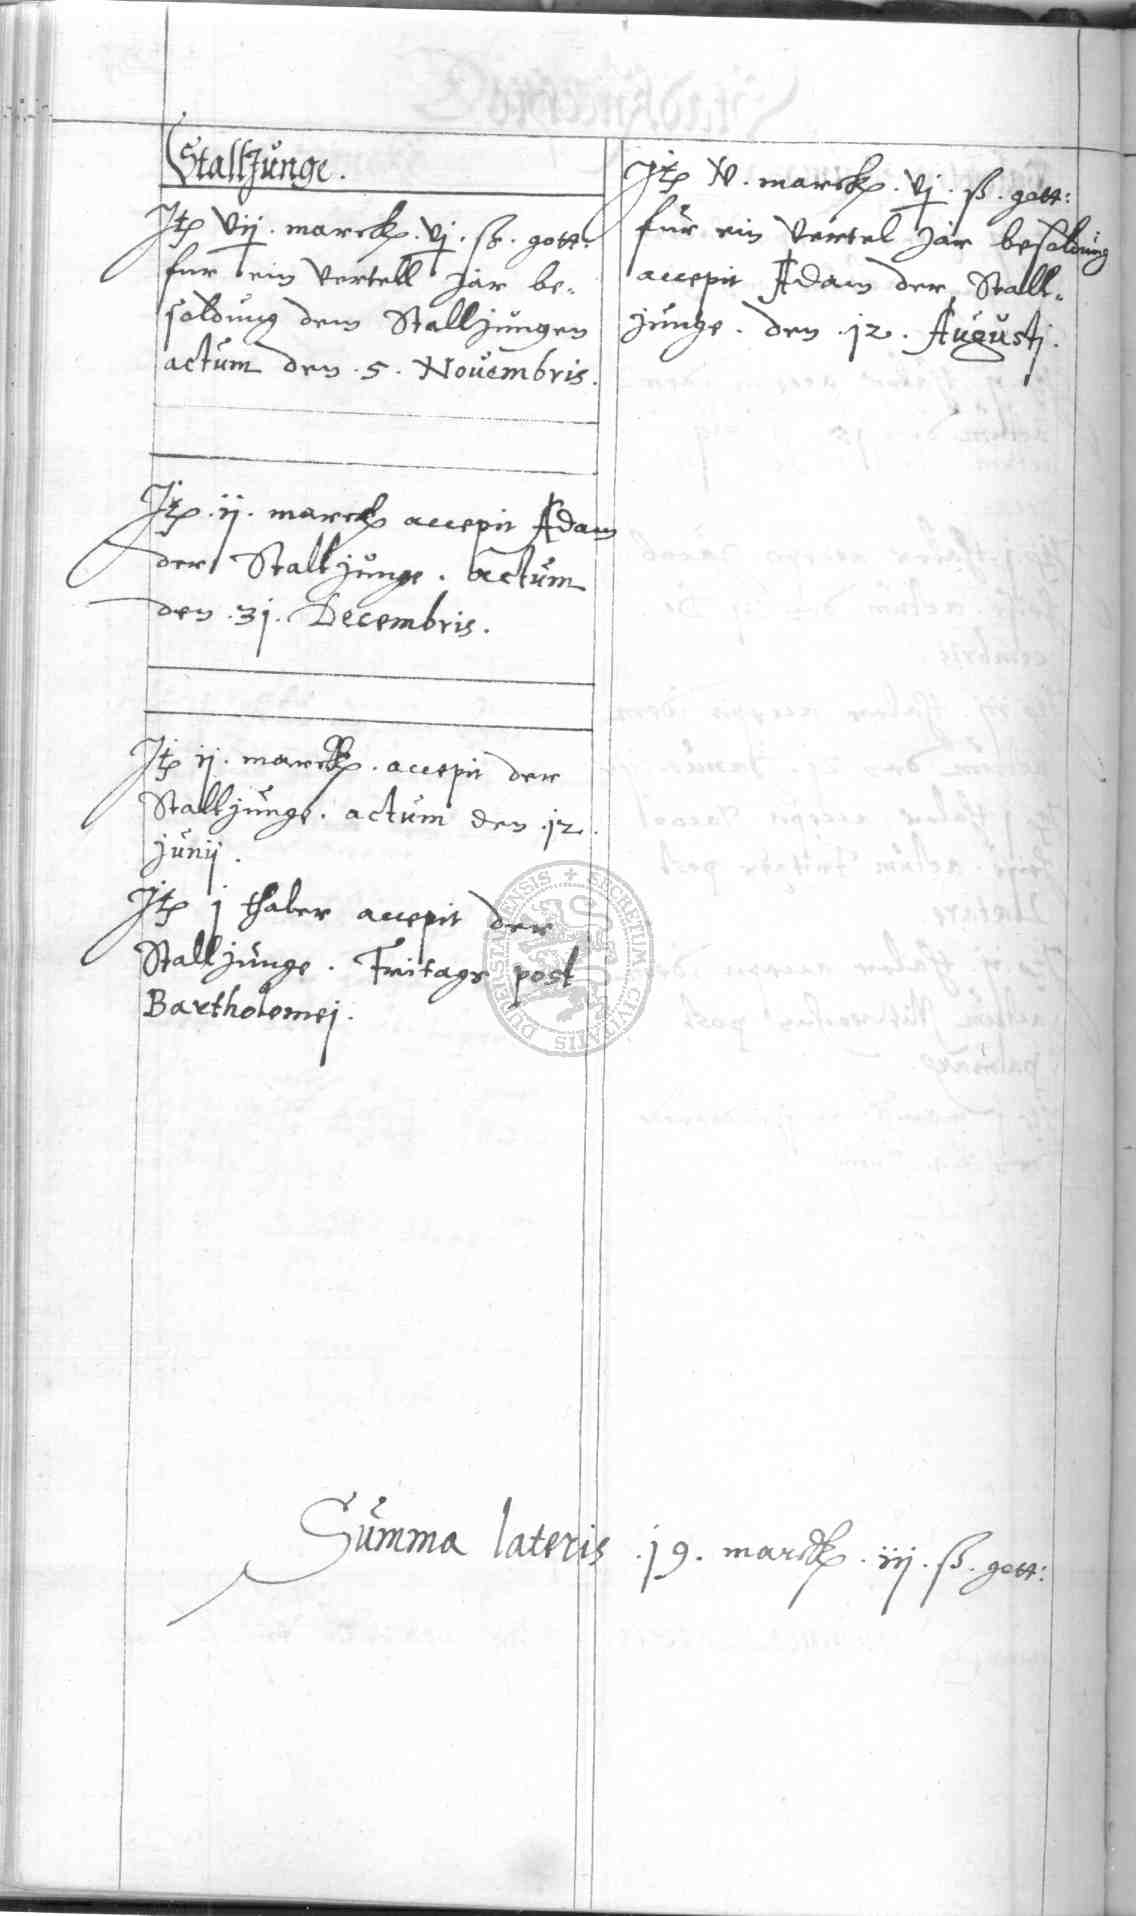 StallJunge.
Jtz Vij. marck. Vj. ß. gott:
fur ein Vertell Jar be-
soldung dem Stalljungen
actum den .5. Novembris.
Jtz .ij. marck accepit Adam
der Stalljunge. actum
den .3j. Decembris.
Jtz ij. marck. accepit der
Stalljunge. actum den .j2.
junij.
Jtz j thaler accepit der
Stalljunge. Fritags post
Bartholomej.
Jtz V. marck. Vj. ß. gott:
für ein Vertel Jar besoldung
accepit Adam der Stall-
junge. den .j2. Augustj.
Summa lateris .j9. marck. iij. ß. gott:
SECRETUM CIVITATIS DUDERSTADENSIS